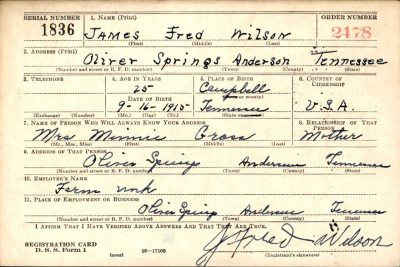 SERIAL NUMBER 1. NAME (Print) ORDER NUMBER
1836 JAMES Fred Wilson 2478
(First) (Middle) (Last)
2. ADDRESS (Print)
Oliver Springs Anderson Tennessee
(Number and street or R. F. D. number) (Town) (County) (State)
3. TELEPHONE 4. AGE IN YEARS 5. PLACE OF BIRTH 6. COUNTRY OF CITIZENSHIP
25 Campbell
DATE OF BIRTH (Town or county)
9-16-1915 Tennessee U.S.A.
(Exchange) (Number) (Mo.) (Day) (Yr.) (State or country)
7. NAME OF PERSON WHO WILL ALWAYS KNOW YOUR ADDRESS 8. RELATIONSHIP OF THAT PERSON
Mrs Minnie Cross Mother
(Mr., Mrs., Miss) (First) (Middle) (Last)
9. ADDRESS OF THAT PERSON
Oliver Springs Anderson Tennessee
(Number and street or R. F. D. number) (Town) (County) (State)
10. EMPLOYER'S NAME
Farm work
11. PLACE OF EMPLOYMENT OR BUSINESS
Oliver Springs Anderson Tennessee
(Number and street or R. F. D. number) (Town) (County) (State)
I AFFIRM THAT I HAVE VERIFIED ABOVE ANSWERS AND THAT THEY ARE TRUE.
REGISTRATION CARD J. Fred Wilson
D. S. S. Form 1 16—17105 (Registrant's signature)